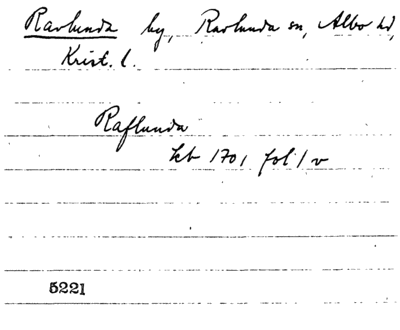 Ravlunda by, Ravlunda sn, Albo hd,
Krist. l.
Raflunda
Lb 1701 fol 1 v
5221